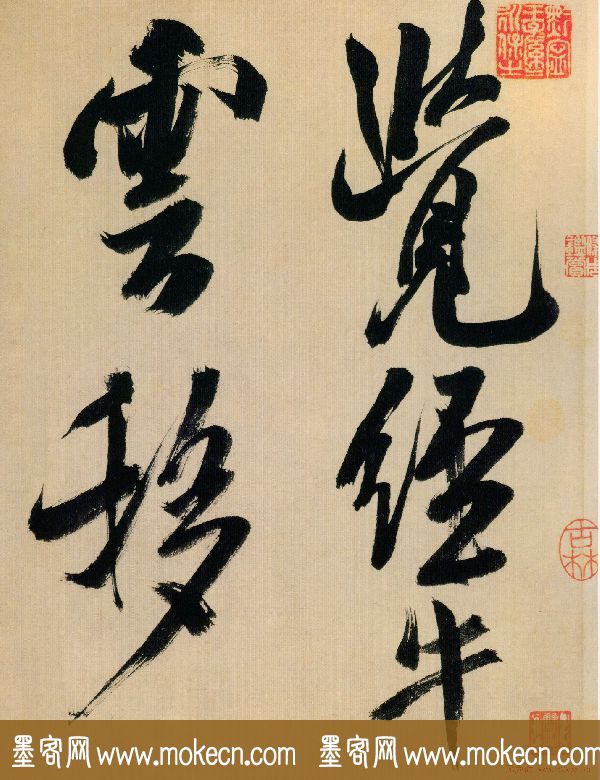 覺經牛
雲移
墨客网 www.mokecn.com 墨客网 www.mokecn.com